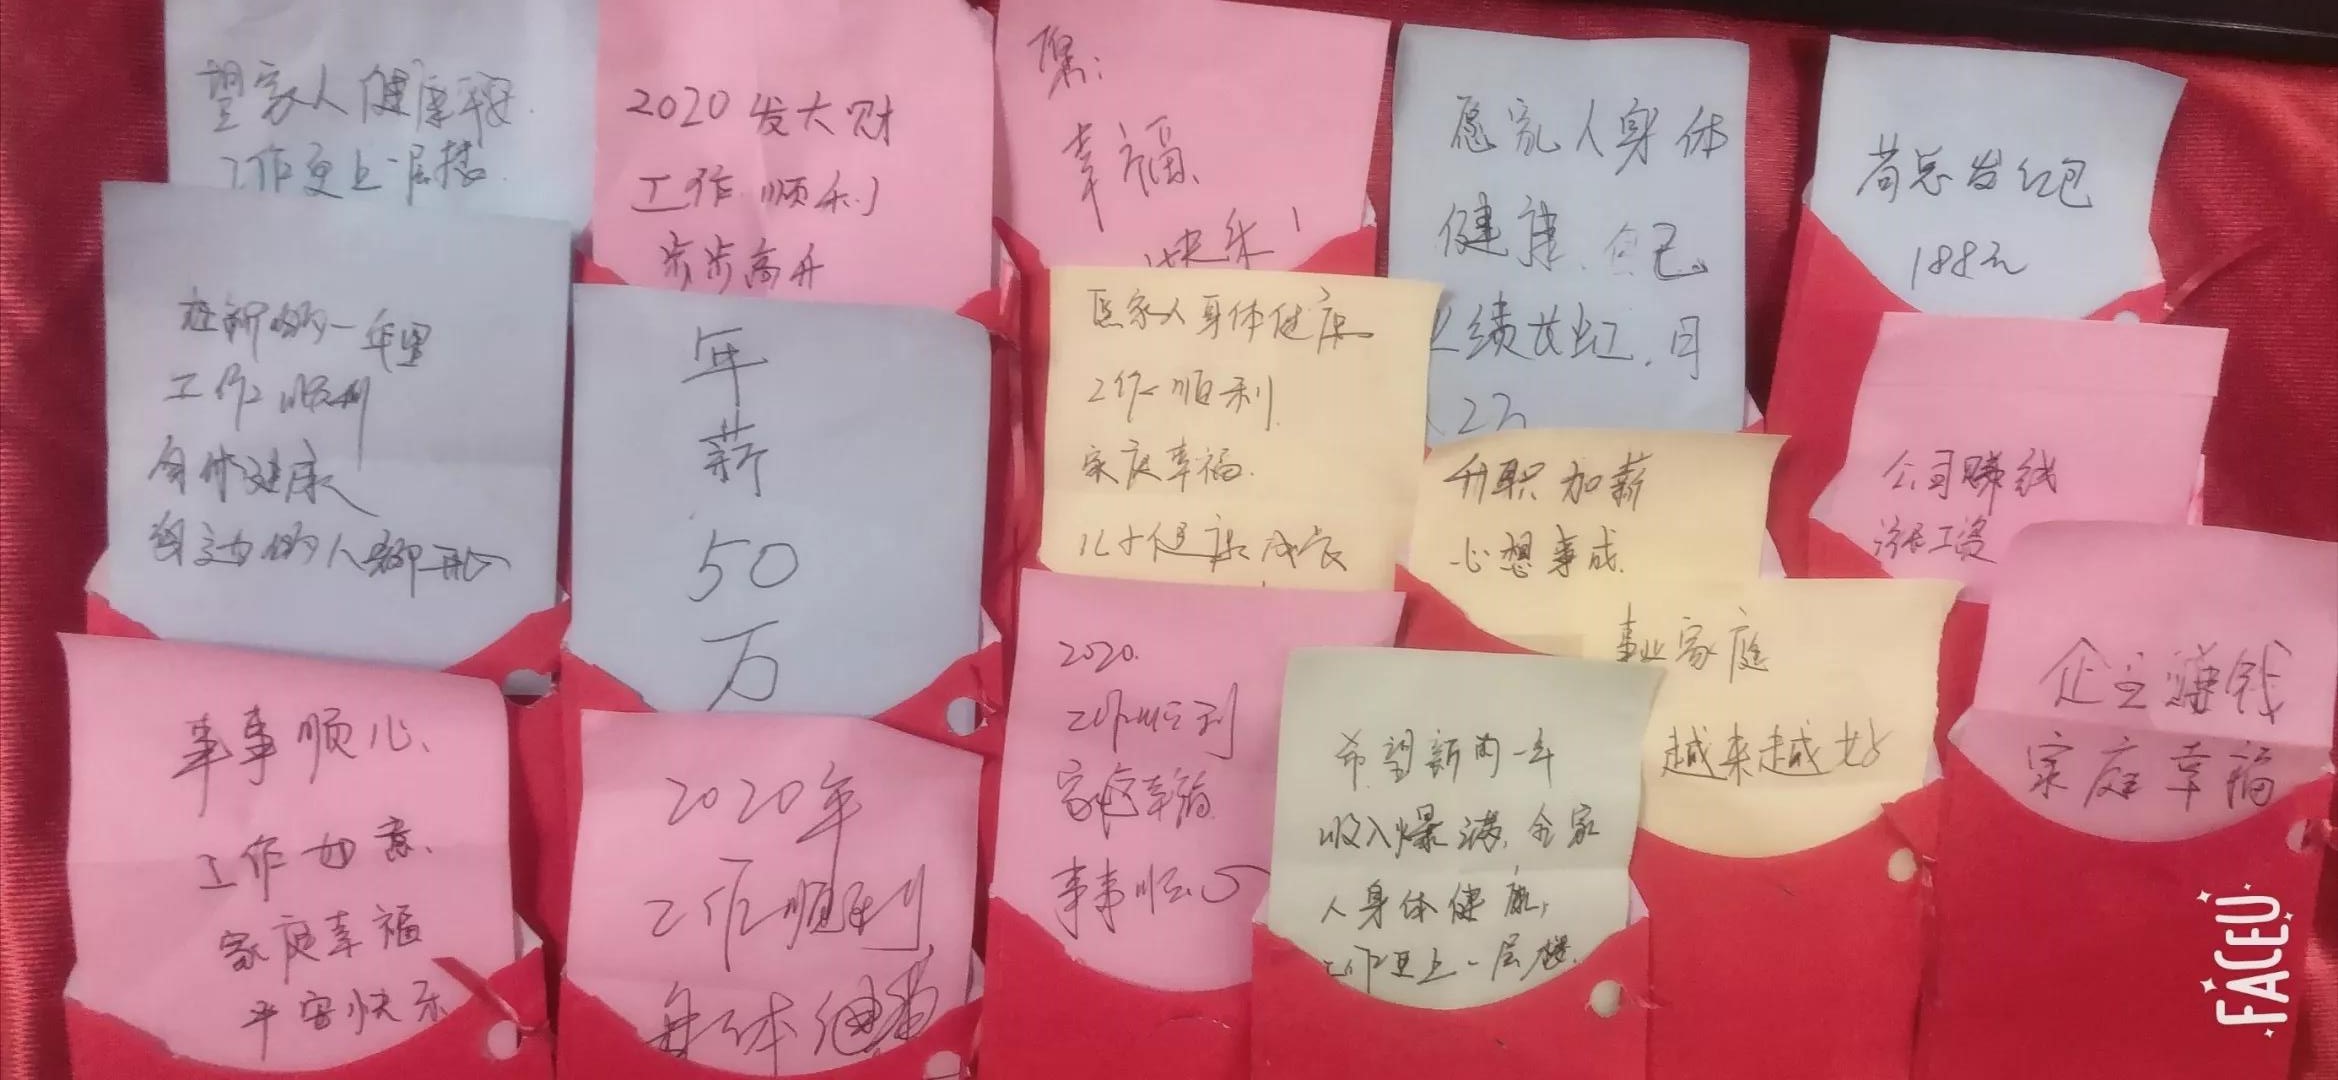 望家人健康平安.
工作更上一层楼.
2020发大财
工作顺利
步步高升
幸福、
快乐！
愿家人身体
健康、自己
业绩长虹,月
入2万
苟总发红包
188元
在新的一年里
工作顺利
身体健康
身边的人都开心
年
薪
50
万
愿家人身体健康
工作顺利.
家庭幸福.
儿子健康成长
升职加薪
心想事成.
公司赚钱
涨工资
事事顺心、
工作如意、
家庭幸福
平安快乐
2020年
工作顺利
身体健康
2020.
工作顺利
家庭幸福
事事顺心
希望新的一年
收入爆满,全家
人身体健康,
工作更上一层楼.
事业家庭
越来越好
企业赚钱
家庭幸福
FACEU